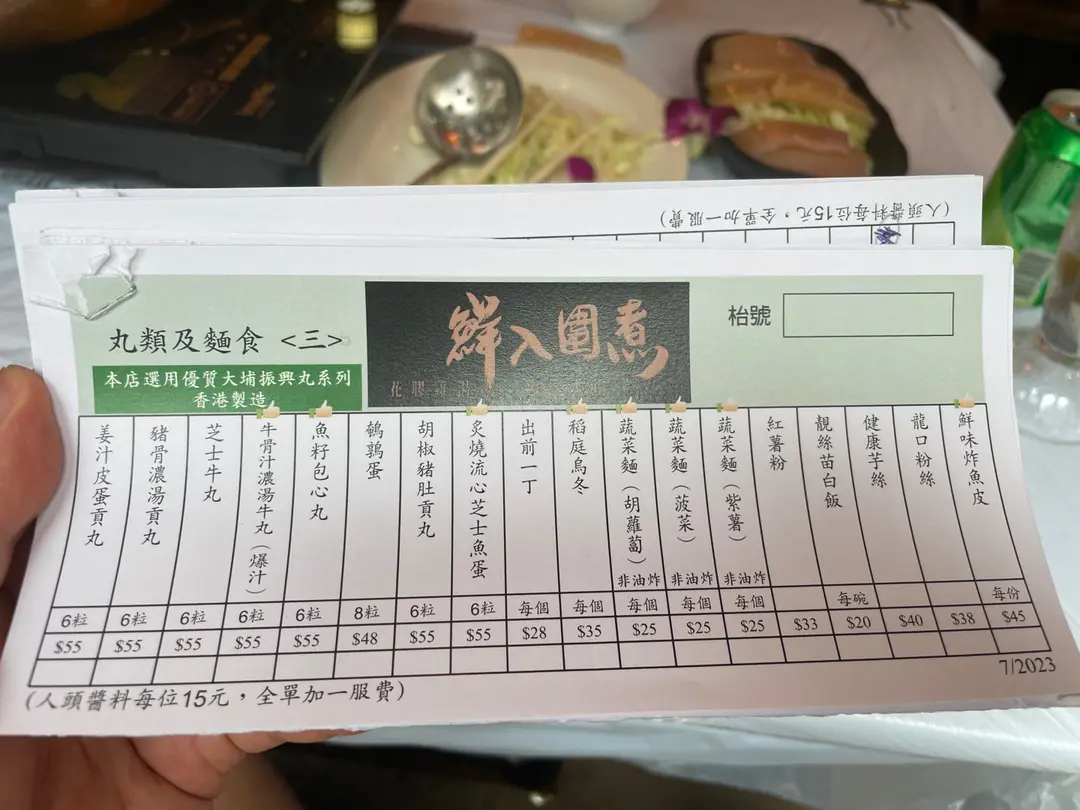 (人頭醬料每位15元，全單加一服費)
丸類及麵食 <三>
本店選用優質大埔振興丸系列
香港製造
鮮入圍煮
枱號
姜汁皮蛋貢丸
豬骨濃湯貢丸
芝士牛丸
牛骨汁濃湯牛丸(爆汁)
魚籽包心丸
鵪鶉蛋
胡椒豬肚貢丸
炙燒流心芝士魚蛋
出前一丁
稻庭烏冬
蔬菜麵(胡蘿蔔)非油炸
蔬菜麵(菠菜)非油炸
蔬菜麵(紫薯)非油炸
紅薯粉
靚絲苗白飯
健康芋絲
龍口粉絲
鮮味炸魚皮
6粒 6粒 6粒 6粒 6粒 8粒 6粒 6粒 每個 每個 每個 每個 每個 每碗 每份
$55 $55 $55 $55 $55 $48 $55 $55 $28 $35 $25 $25 $25 $33 $20 $40 $38 $45
7/2023
(人頭醬料每位15元，全單加一服費)